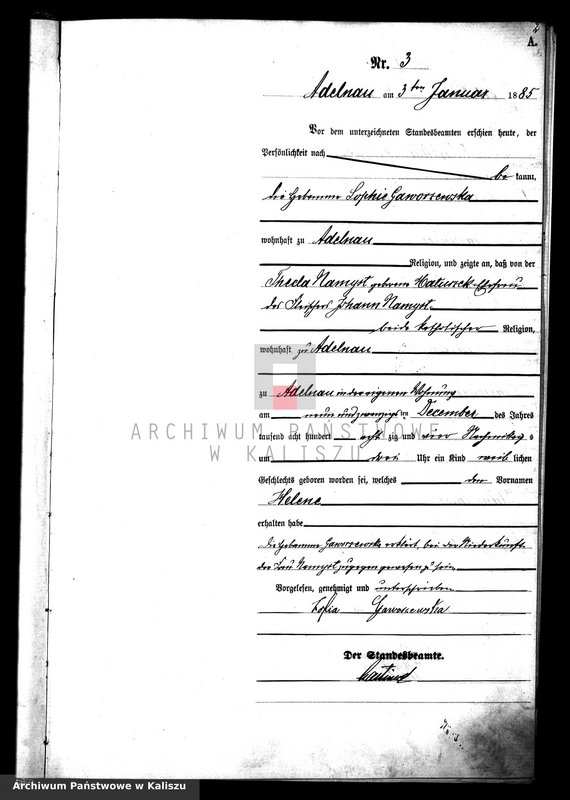 A.
Nr. 3
Adelnau am 3ten Januar 1885
Vor dem unterzeichneten Standesbeamten erschien heute, der
Persönlichkeit nach
be kannt,
die Hebamme Sophie Gaworzewska
wohnhaft zu Adelnau
Religion, und zeigte an, daß von der
Thecla Namyst geborene Ehefrau
des Fleischers Johann Namyst
beide katholischer Religion,
wohnhaft zu Adelnau
zu Adelnau in der eigenen Wohnung
am neun und zwanzigsten December des Jahres
tausend acht hundert acht zig und vier Nachmittags
um drei Uhr ein Kind weib lichen
Geschlechts geboren worden sei, welches den Vornamen
Helene
erhalten habe
Die Hebamme Gaworzewska erklärt, bei der Niederkunft
der Frau Namyst zugegen gewesen zu sein
Vorgelesen, genehmigt und unterschrieben
Zofia Gaworzewska
Der Standesbeamte.
ARCHIWUM PAŃSTWOWE
W KALISZU
Archiwum Państwowe w Kaliszu